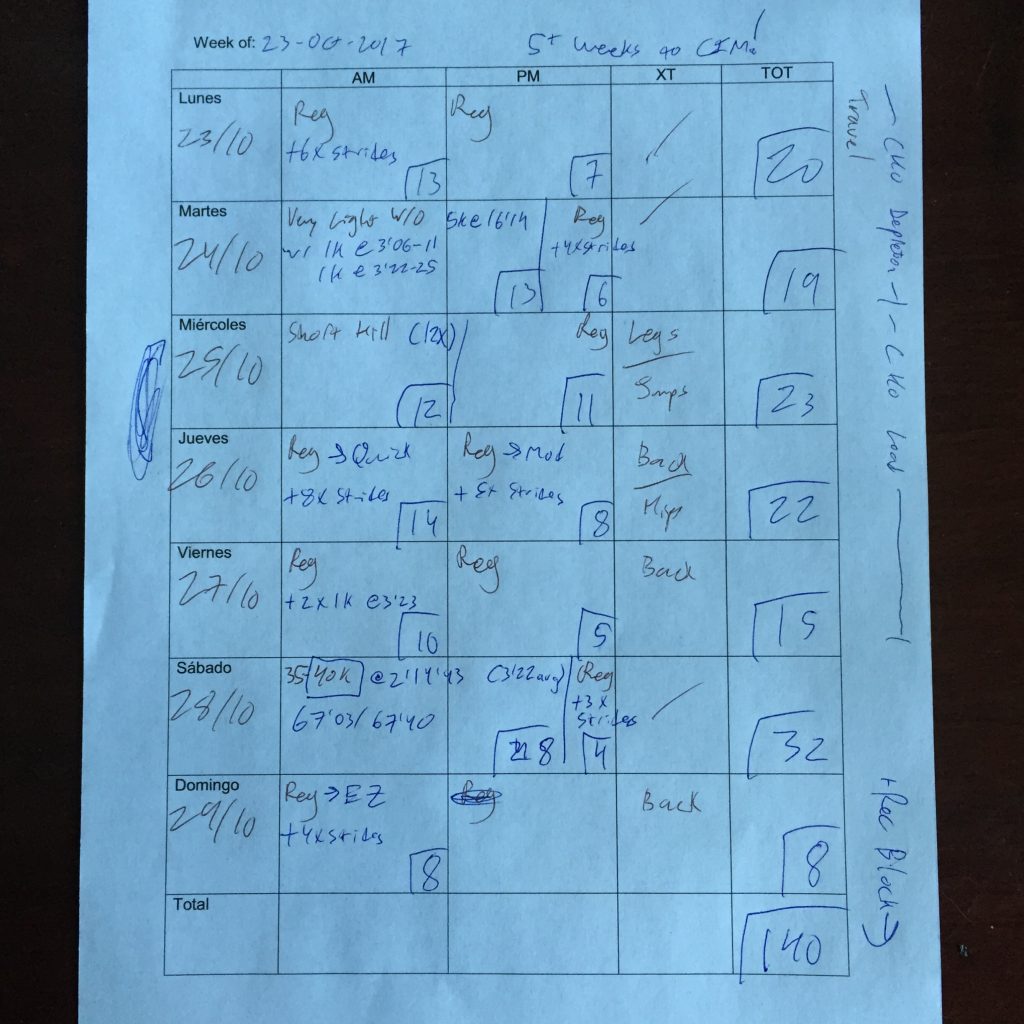 Week of: 23-Oct-2017 5+ weeks to CIM!
AM PM XT TOT
Lunes
23/10
Reg
+6x strides
13
Reg
7
20
Martes
24/10
Very Light W/O
w/ 1K @ 3'06-11
1K @ 3'22-25
5K @ 16'14
13
Reg
+4xstrides
6
19
Miércoles
25/10
Short Hill (12x)
12
Reg
11
Legs
23
Jueves
26/10
Reg → Quick
+8x strides
14
Reg → Mod
+ 5x strides
8
Back
Hips
22
Viernes
27/10
Reg
+2x1K @3'23
10
Reg
5
Back
15
Sábado
28/10
35-40K @ 2'14'43 (3'22avg)
67'03/67'40
28
(Reg
+3x
strides
4
32
Domingo
29/10
Reg → EZ
+4xstrides
8
Reg
Back
8
Total
140
Travel
— CHO Depletion -/ - CHO Load —
+ Rec Block →